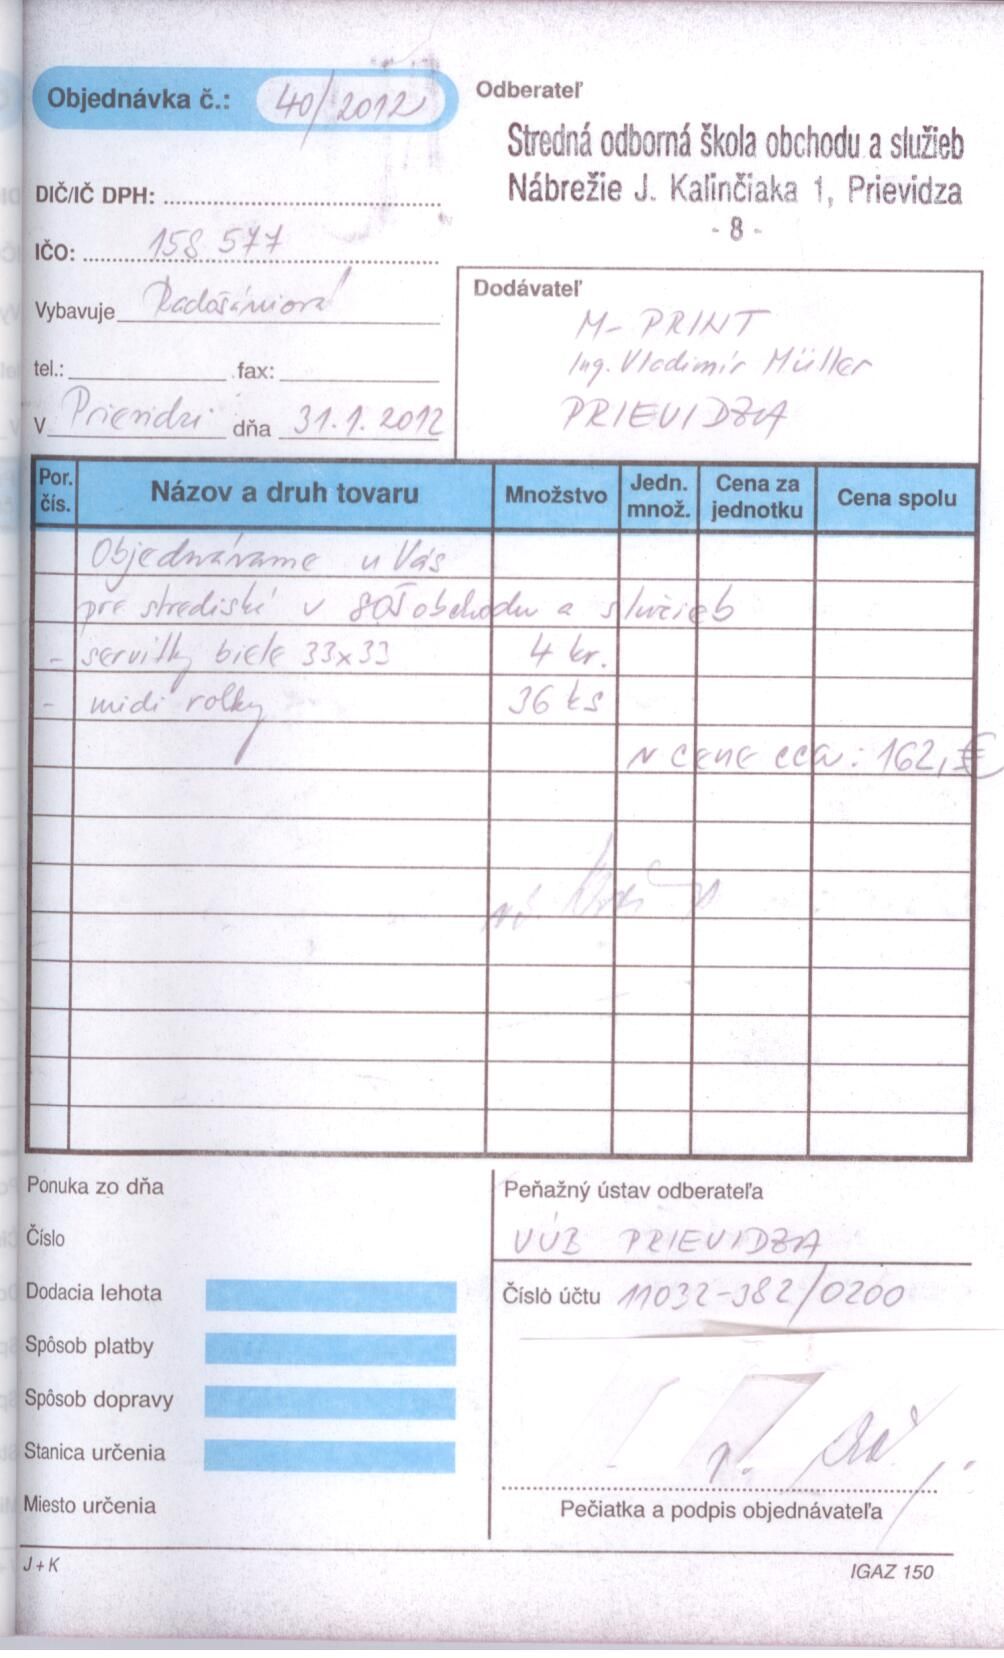 Objednávka č.: 40/2012
Odberateľ
Stredná odborná škola obchodu a služieb
Nábrežie J. Kalinčiaka 1, Prievidza
- 8 -
DIČ/IČ DPH:
IČO: 158 577
Vybavuje
tel.: fax:
V Prievidzi dňa 31.1.2012
Dodávateľ
M- PRINT
Ing. Vladimír Müller
PRIEVIDZA
Por. čís. Názov a druh tovaru Množstvo Jedn. množ. Cena za jednotku Cena spolu
Objednávame u Vás
pre strediská v SOŠ obchodu a služieb
- servítky biele 33x33 4 kr.
- midi rolky 36 ks
v cene cca: 162,- €
Ponuka zo dňa
Číslo
Dodacia lehota
Spôsob platby
Spôsob dopravy
Stanica určenia
Miesto určenia
Peňažný ústav odberateľa
VÚB PRIEVIDZA
Číslo účtu 11032-382/0200
Pečiatka a podpis objednávateľa
J + K
IGAZ 150